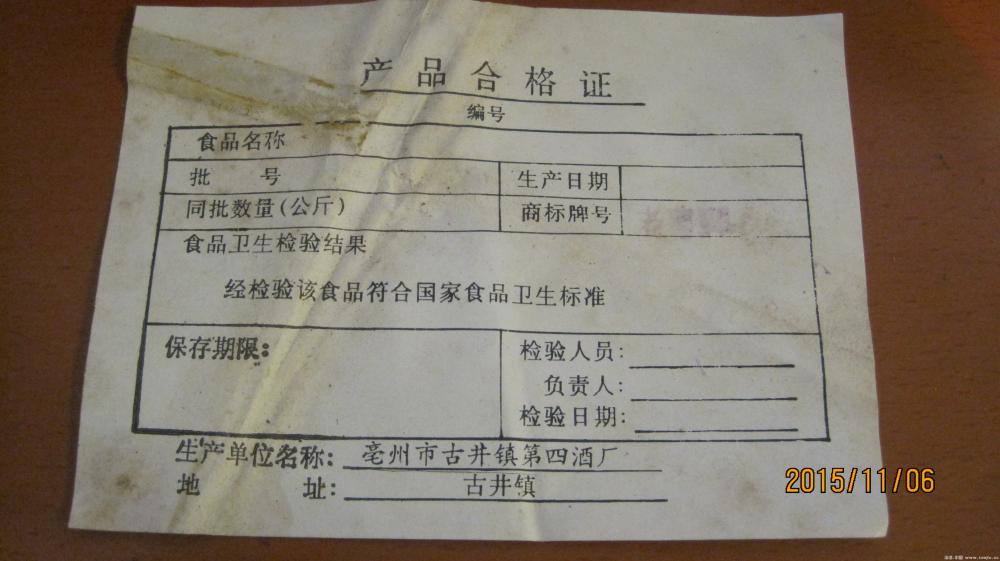 产品合格证
编号
食品名称
批 号 生产日期
同批数量(公斤) 商标牌号
食品卫生检验结果
经检验该食品符合国家食品卫生标准
保存期限: 检验人员:
负责人:
检验日期:
生产单位名称: 亳州市古井镇第四酒厂
地 址: 古井镇
2015/11/06